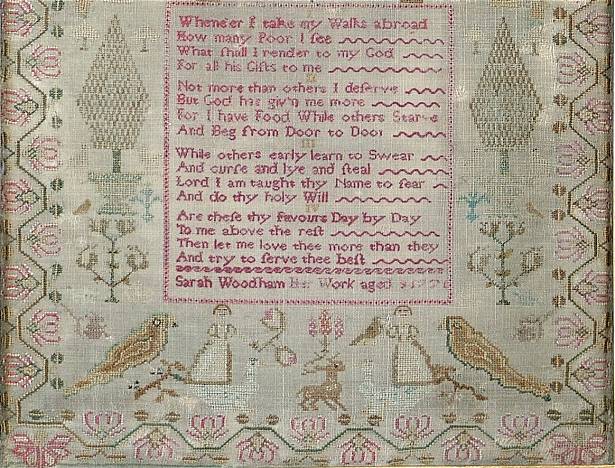 Whene'er I take my Walks abroad
How many Poor I see
What shall I render to my God
For all his Gifts to me
II
Not more than others I deserve
But God has giv'n me more
For I have Food While others Starve
And Beg from Door to Door
III
While others early learn to Swear
And curse and lye and steal
Lord I am taught thy Name to fear
And do thy holy Will
IV
Are these thy favours Day by Day
To me above the rest
Then let me love thee more than they
And try to serve thee best
Sarah Woodham Her Work aged